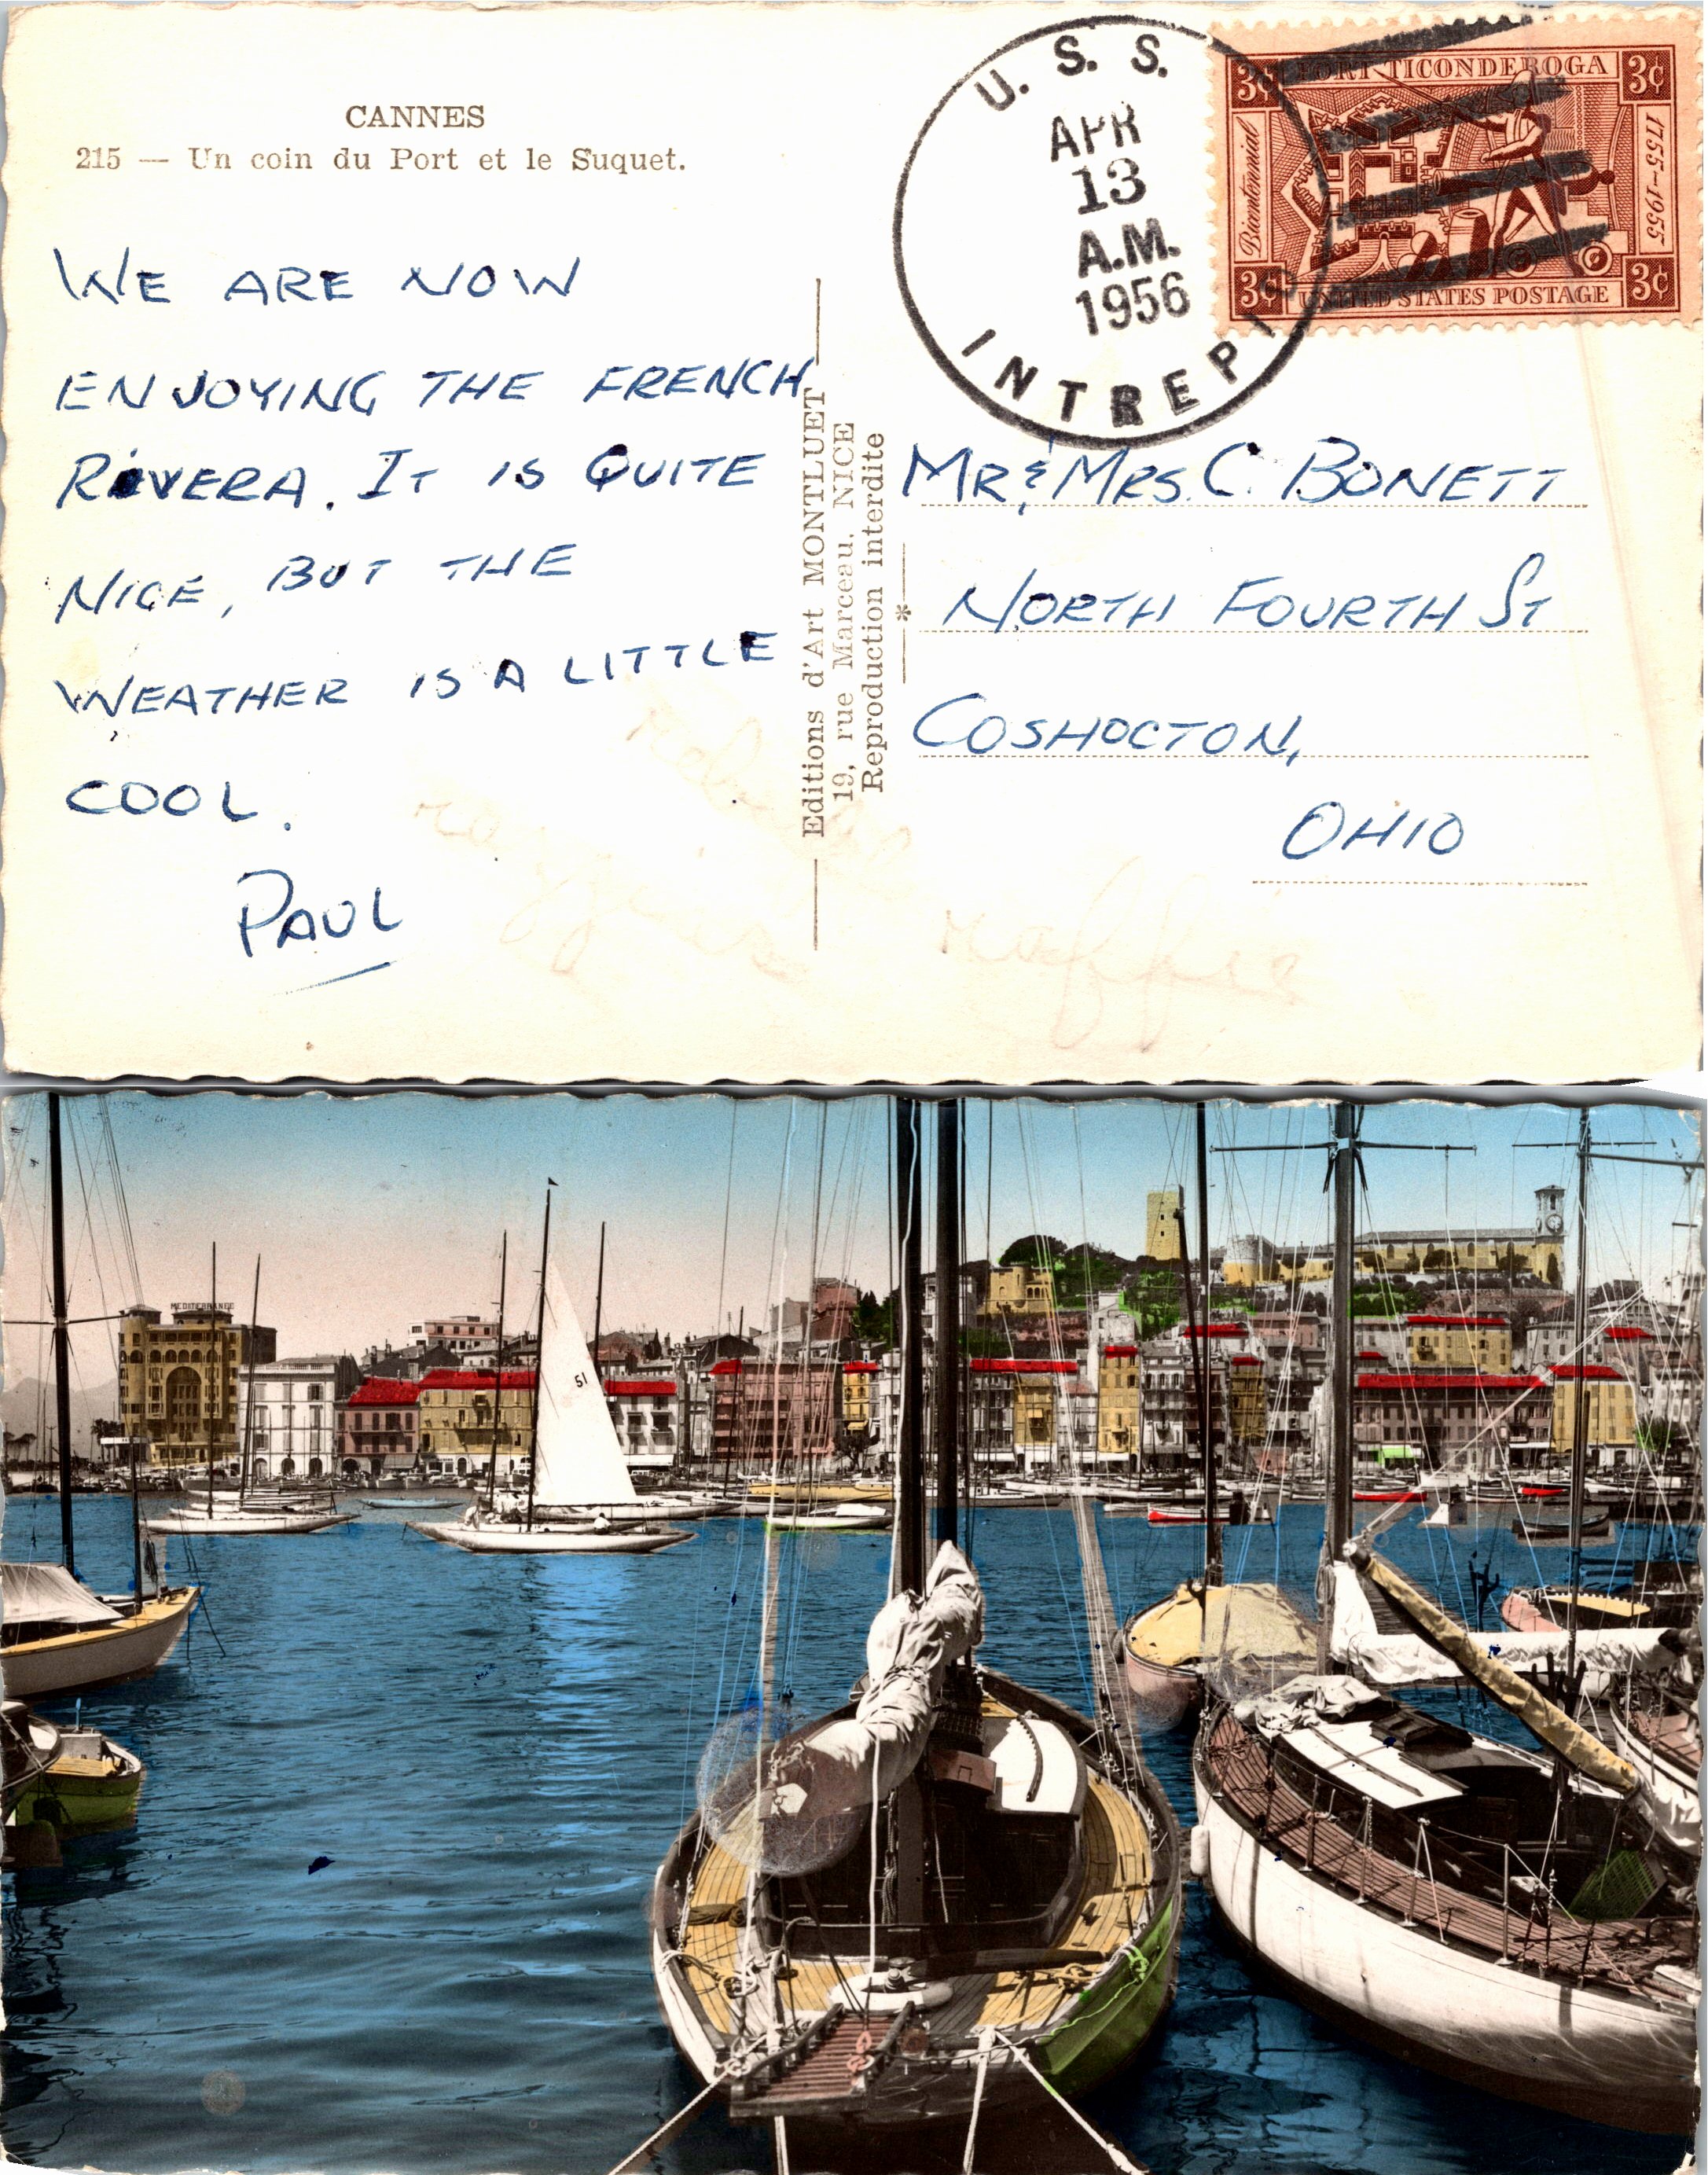 CANNES
215 — Un coin du Port et le Suquet.
WE ARE NOW
ENJOYING THE FRENCH
RIVERA. IT IS QUITE
NICE, BUT THE
WEATHER IS A LITTLE
COOL.
PAUL
Editions d'Art MONTLUET
19, rue Marceau. NICE
Reproduction interdite
*
U. S. S.
APR
13
A.M.
1956
INTREPID
3¢ FORT TICONDEROGA 3¢
Bicentennial
1755-1955
3¢ UNITED STATES POSTAGE 3¢
MR & MRS. C. BONETT
NORTH FOURTH ST
COSHOCTON,
OHIO
MEDITERRANEE
51